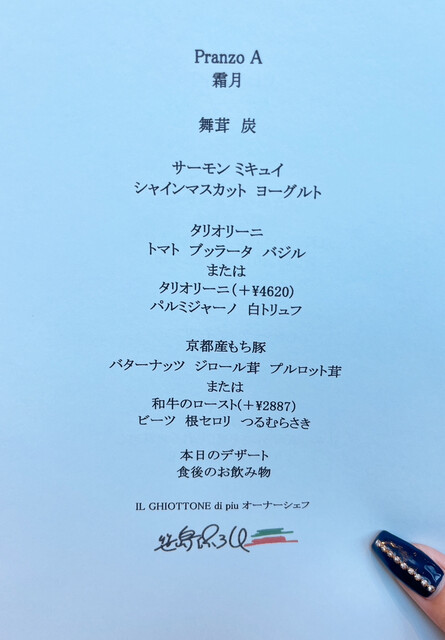 Pranzo A
霜月
舞茸 炭
サーモン ミキュイ
シャインマスカット ヨーグルト
タリオリーニ
トマト ブッラータ バジル
または
タリオリーニ(＋¥4620)
パルミジャーノ 白トリュフ
京都産もち豚
バターナッツ ジロール茸 プルロット茸
または
和牛のロースト(＋¥2887)
ビーツ 根セロリ つるむらさき
本日のデザート
食後のお飲み物
IL GHIOTTONE di piu オーナーシェフ